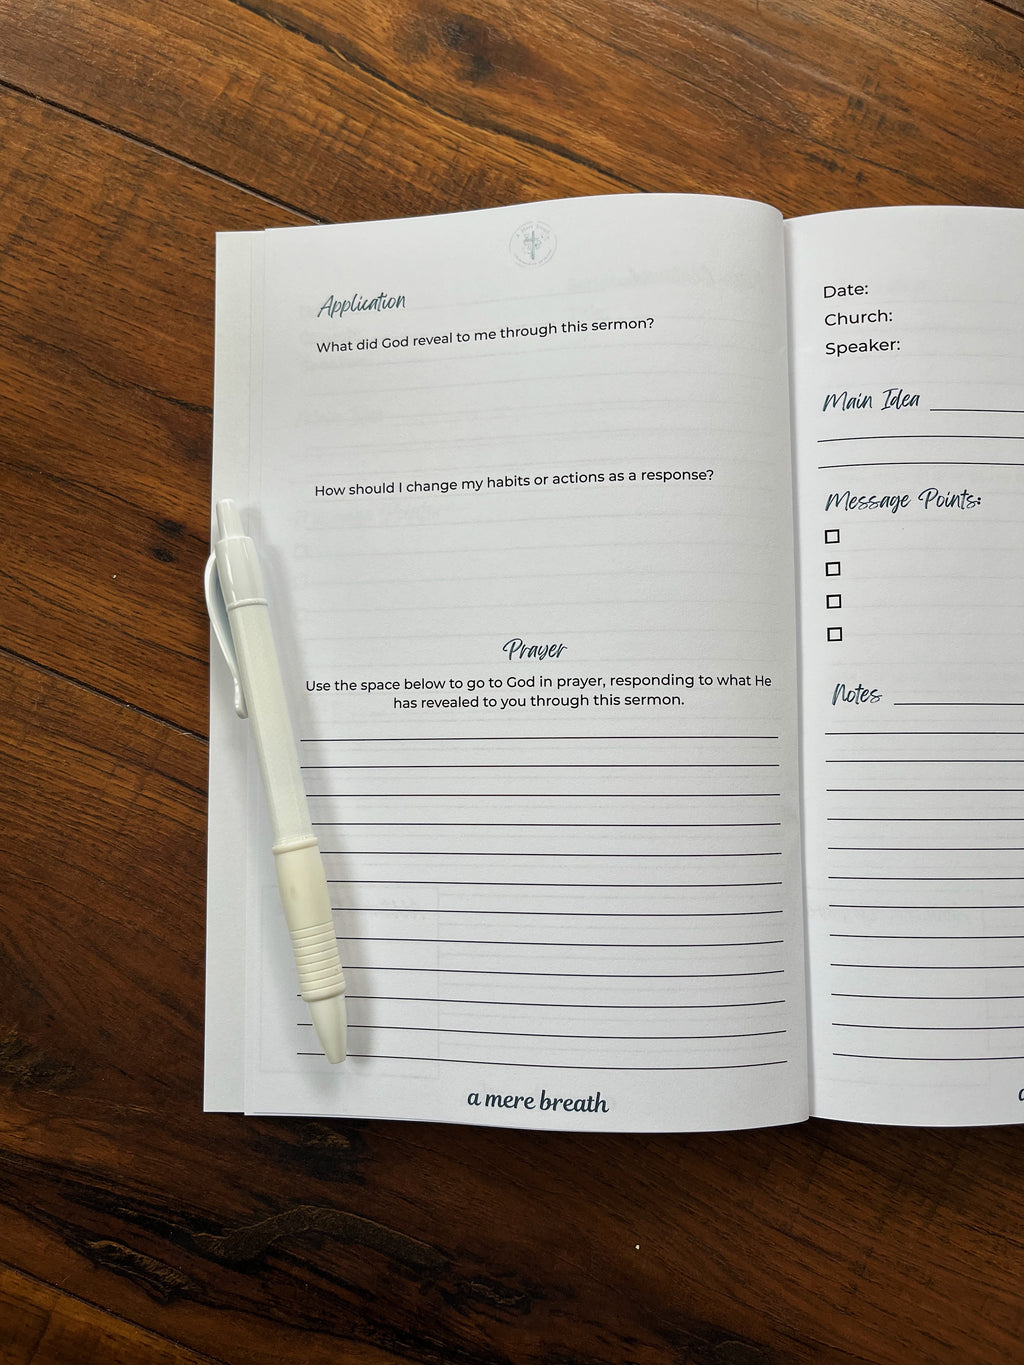 Application
What did God reveal to me through this sermon?
How should I change my habits or actions as a response?
Prayer
Use the space below to go to God in prayer, responding to what He
has revealed to you through this sermon.
a mere breath
Date:
Church:
Speaker:
Main Idea
Message Points:
Notes